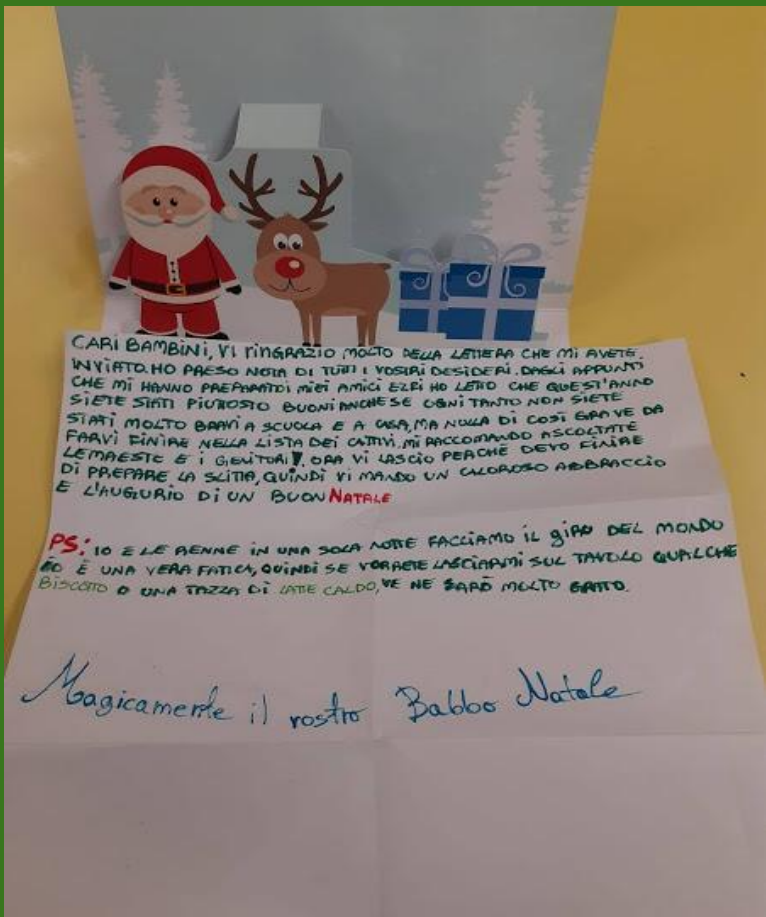 CARI BAMBINI, VI RINGRAZIO MOLTO DELLA LETTERA CHE MI AVETE
INVIATO. HO PRESO NOTA DI TUTTI I VOSTRI DESIDERI. DAGLI APPUNTI
CHE MI HANNO PREPARATO I MIEI AMICI ELFI HO LETTO CHE QUEST'ANNO
SIETE STATI PIUTTOSTO BUONI ANCHE SE OGNI TANTO NON SIETE
STATI MOLTO BRAVI A SCUOLA E A CASA, MA NULLA DI COSÌ GRAVE DA
FARVI FINIRE NELLA LISTA DEI CATTIVI. MI RACCOMANDO ASCOLTATE
LE MAESTE E I GENITORI! ORA VI LASCIO PERCHÉ DEVO FINIRE
DI PREPARE LA SLITTA, QUINDI VI MANDO UN CALOROSO ABBRACCIO
E L'AUGURIO DI UN BUON NATALE
PS: IO E LE RENNE IN UNA SOLA NOTTE FACCIAMO IL GIRO DEL MONDO
ED È UNA VERA FATICA, QUINDI SE VORRETE LASCIARMI SUL TAVOLO QUALCHE
BISCOTTO O UNA TAZZA DI LATTE CALDO, VE NE SARÒ MOLTO GRATO.
Magicamente il vostro Babbo Natale